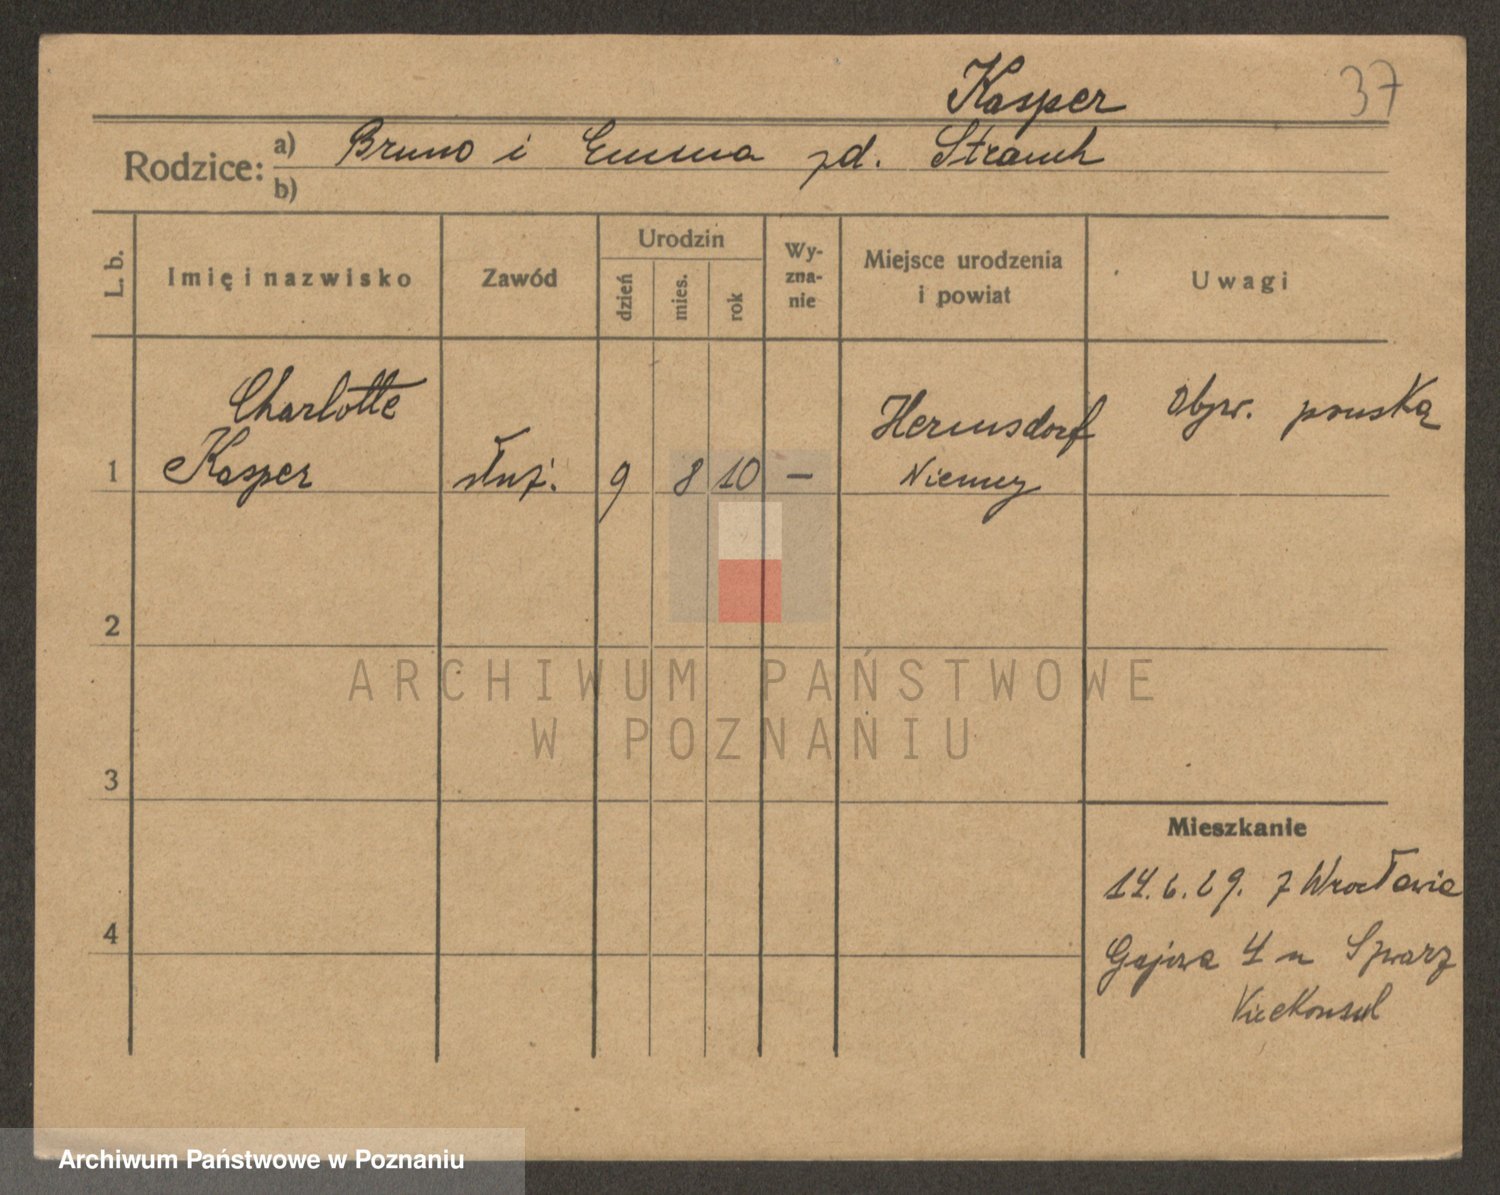 Kasper
37
Rodzice: a) Bruno i Emma zd. Strauch
b)
L. b.
Imię i nazwisko
Zawód
Urodzin
dzień
mies.
rok
Wy-
zna-
nie
Miejsce urodzenia
i powiat
Uwagi
Charlotte
Kasper
1
służ.
9
8
10
—
Hermsdorf
Niemcy
obyw. pruska
2
3
4
Mieszkanie
14.6.29. z Wrocławia
Gajowa 4 u
Vicekonsul
ARCHIWUM PAŃSTWOWE
W POZNANIU
Archiwum Państwowe w Poznaniu